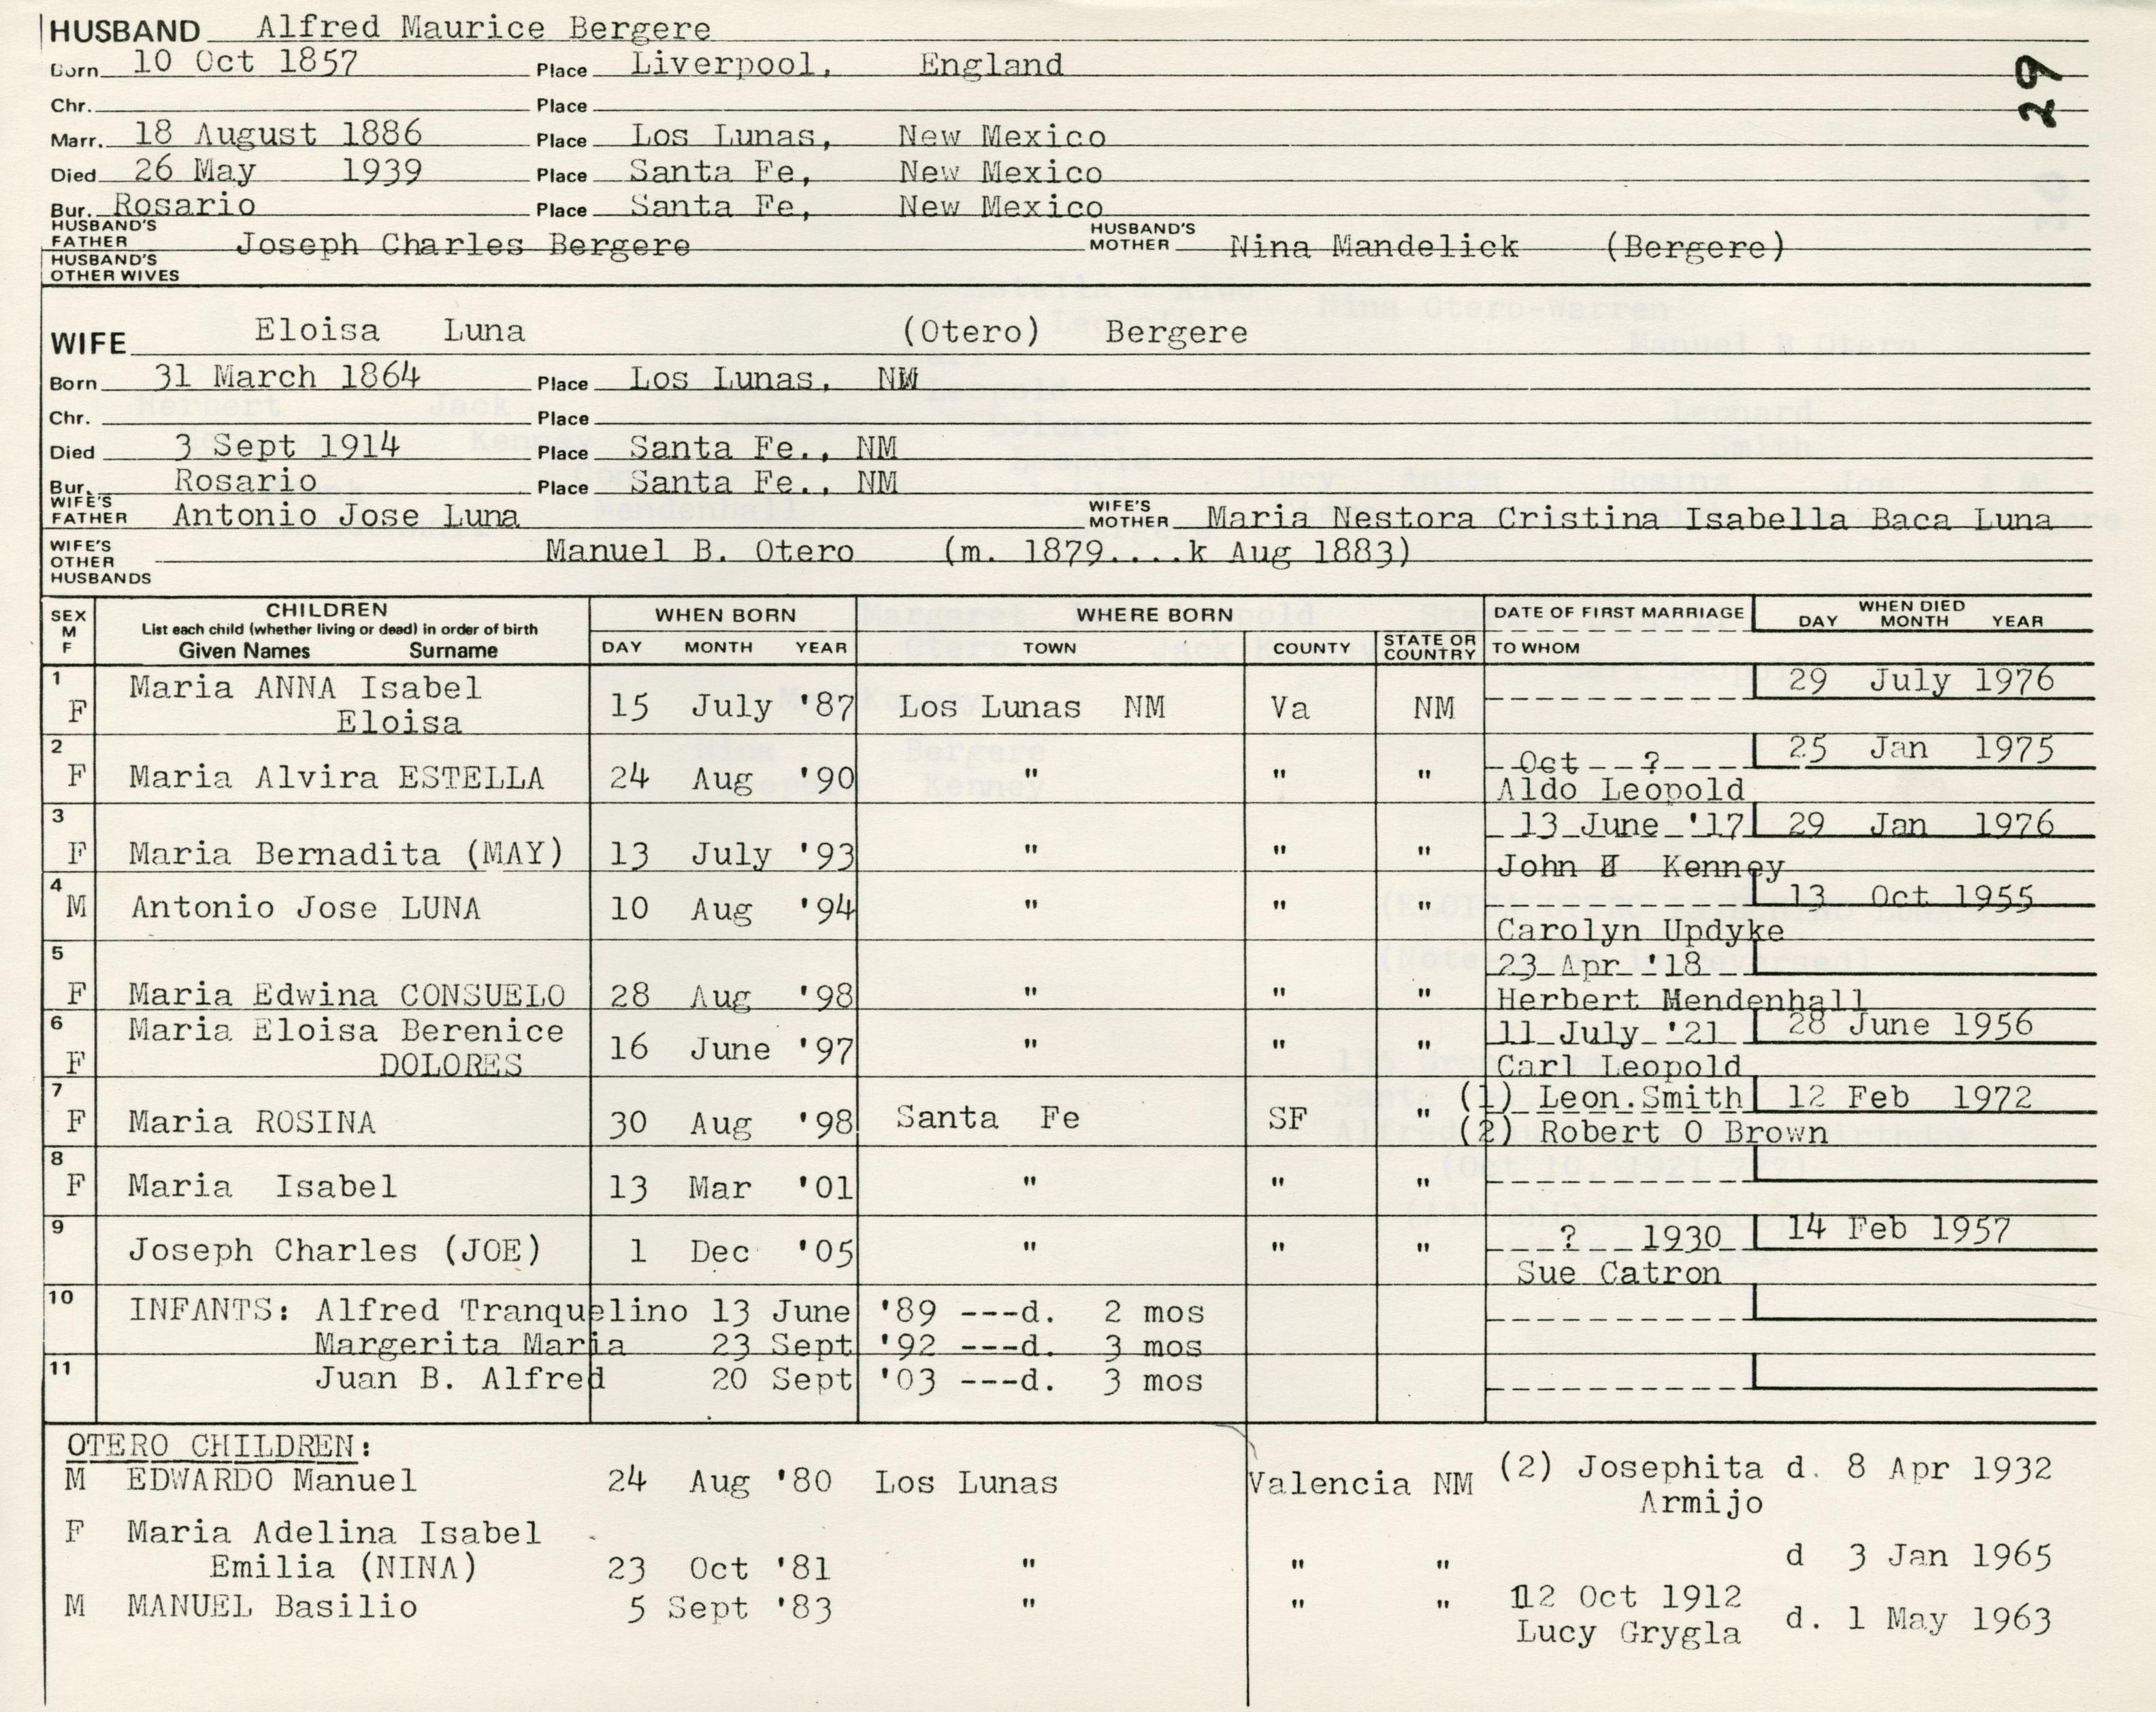 HUSBAND Alfred Maurice Bergere
29
Born 10 Oct 1857 Place Liverpool, England
Chr. Place
Marr. 18 August 1886 Place Los Lunas, New Mexico
Died 26 May 1939 Place Santa Fe, New Mexico
Bur. Rosario Place Santa Fe, New Mexico
HUSBAND'S FATHER Joseph Charles Bergere HUSBAND'S MOTHER Nina Mandelick (Bergere)
HUSBAND'S OTHER WIVES
WIFE Eloisa Luna (Otero) Bergere
Born 31 March 1864 Place Los Lunas, NM
Chr. Place
Died 3 Sept 1914 Place Santa Fe., NM
Bur. Rosario Place Santa Fe., NM
WIFE'S FATHER Antonio Jose Luna WIFE'S MOTHER Maria Nestora Cristina Isabella Baca Luna
WIFE'S OTHER HUSBANDS Manuel B. Otero (m. 1879....k Aug 1883)
SEX M F CHILDREN List each child (whether living or dead) in order of birth Given Names Surname WHEN BORN DAY MONTH YEAR WHERE BORN TOWN COUNTY STATE OR COUNTRY DATE OF FIRST MARRIAGE TO WHOM WHEN DIED DAY MONTH YEAR
1 Maria ANNA Isabel 29 July 1976
F Eloisa 15 July '87 Los Lunas NM Va NM
2 Oct ? 25 Jan 1975
F Maria Alvira ESTELLA 24 Aug '90 " " " Aldo Leopold
3 13 June '17 29 Jan 1976
F Maria Bernadita (MAY) 13 July '93 " " " John H Kenney
4 13 Oct 1955
M Antonio Jose LUNA 10 Aug '94 " " " Carolyn Updyke
5 23 Apr '18
F Maria Edwina CONSUELO 28 Aug '98 " " " Herbert Mendenhall
6 Maria Eloisa Berenice 11 July '21 28 June 1956
F DOLORES 16 June '97 " " " Carl Leopold
7 (1) Leon.Smith 12 Feb 1972
F Maria ROSINA 30 Aug '98 Santa Fe SF " (2) Robert O Brown
8
F Maria Isabel 13 Mar '01 " " "
9 ? 1930 14 Feb 1957
Joseph Charles (JOE) 1 Dec '05 " " " Sue Catron
10 INFANTS: Alfred Tranquelino 13 June '89 ---d. 2 mos
Margerita Maria 23 Sept '92 ---d. 3 mos
11 Juan B. Alfred 20 Sept '03 ---d. 3 mos
OTERO CHILDREN:
M EDWARDO Manuel 24 Aug '80 Los Lunas Valencia NM (2) Josephita d. 8 Apr 1932
Armijo
F Maria Adelina Isabel
Emilia (NINA) 23 Oct '81 " " " d 3 Jan 1965
M MANUEL Basilio 5 Sept '83 " " " 12 Oct 1912
Lucy Grygla d. 1 May 1963